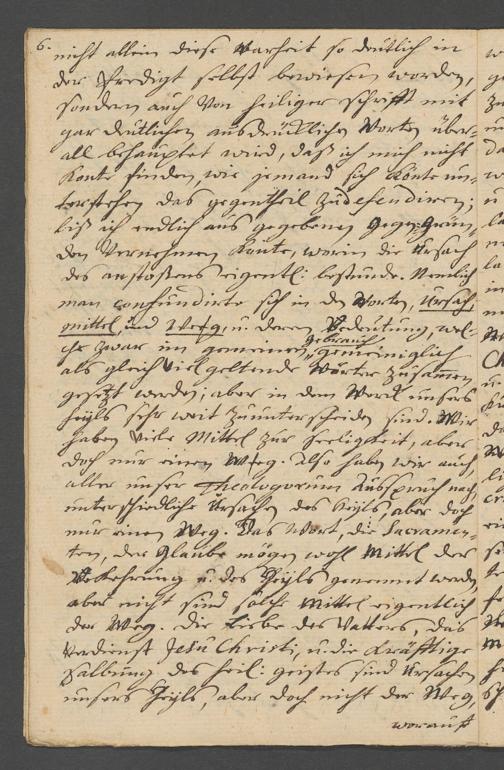 6.
nicht allein diese Warheit so deutlich in
der Predigt selbst bewiesen worden,
sondern auch von heiliger schrifft mit
gar deutlichen ausdrücklichen Worten über-
all behauptet wird, daß ich mich nicht
konte finden, wie jemand sich könte un-
terstehen das gegentheil zu defendiren;
biß ich endlich aus gegebenen gegen-Grün-
den vernehmen könte, worin die Ursach
des anstoßens eigentl: bestunde. Nemlich
man confundirte sich in den Worten, Ursach,
mittel, und Weg, u. deren Bedeutung, wel-
che zwar im gemeinen gebrauch gemeiniglich
als gleich viel geltende Wörter zusamen
gesetzt werden; aber in dem Werck unsers
heyls sehr weit zu unterscheiden sind. Wir
haben viele Mittel zur Seeligkeit, aber
doch nur einen Weg. Also haben wir auch,
aller unser Theologorum Ausspruch nach,
unterschiedliche Ursachen des heyls, aber doch
nur einen Weg. Das Wort, die Sacramen-
ten, der Glaube mögen wohl Mittel der
Bekehrung u. des Heyls genennet werden,
aber nicht sind solche Mittel eigentlich
der Weg. Die Liebe des Vatters, das
Verdienst Jesu Christi, u. die kräfftige
Salbung des heil: geistes sind Ursachen
unsers Heyls, aber doch nicht der Weg,
worauf